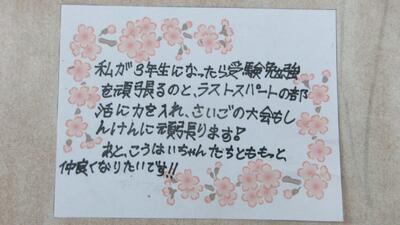 私が3年生になったら受験勉強
を頑張るのと、ラストスパートの部
活に力を入れ、さいごの大会もし
んけんに頑張ります!
あと、こうはいちゃんたちとももっと、
仲良くなりたいです!!